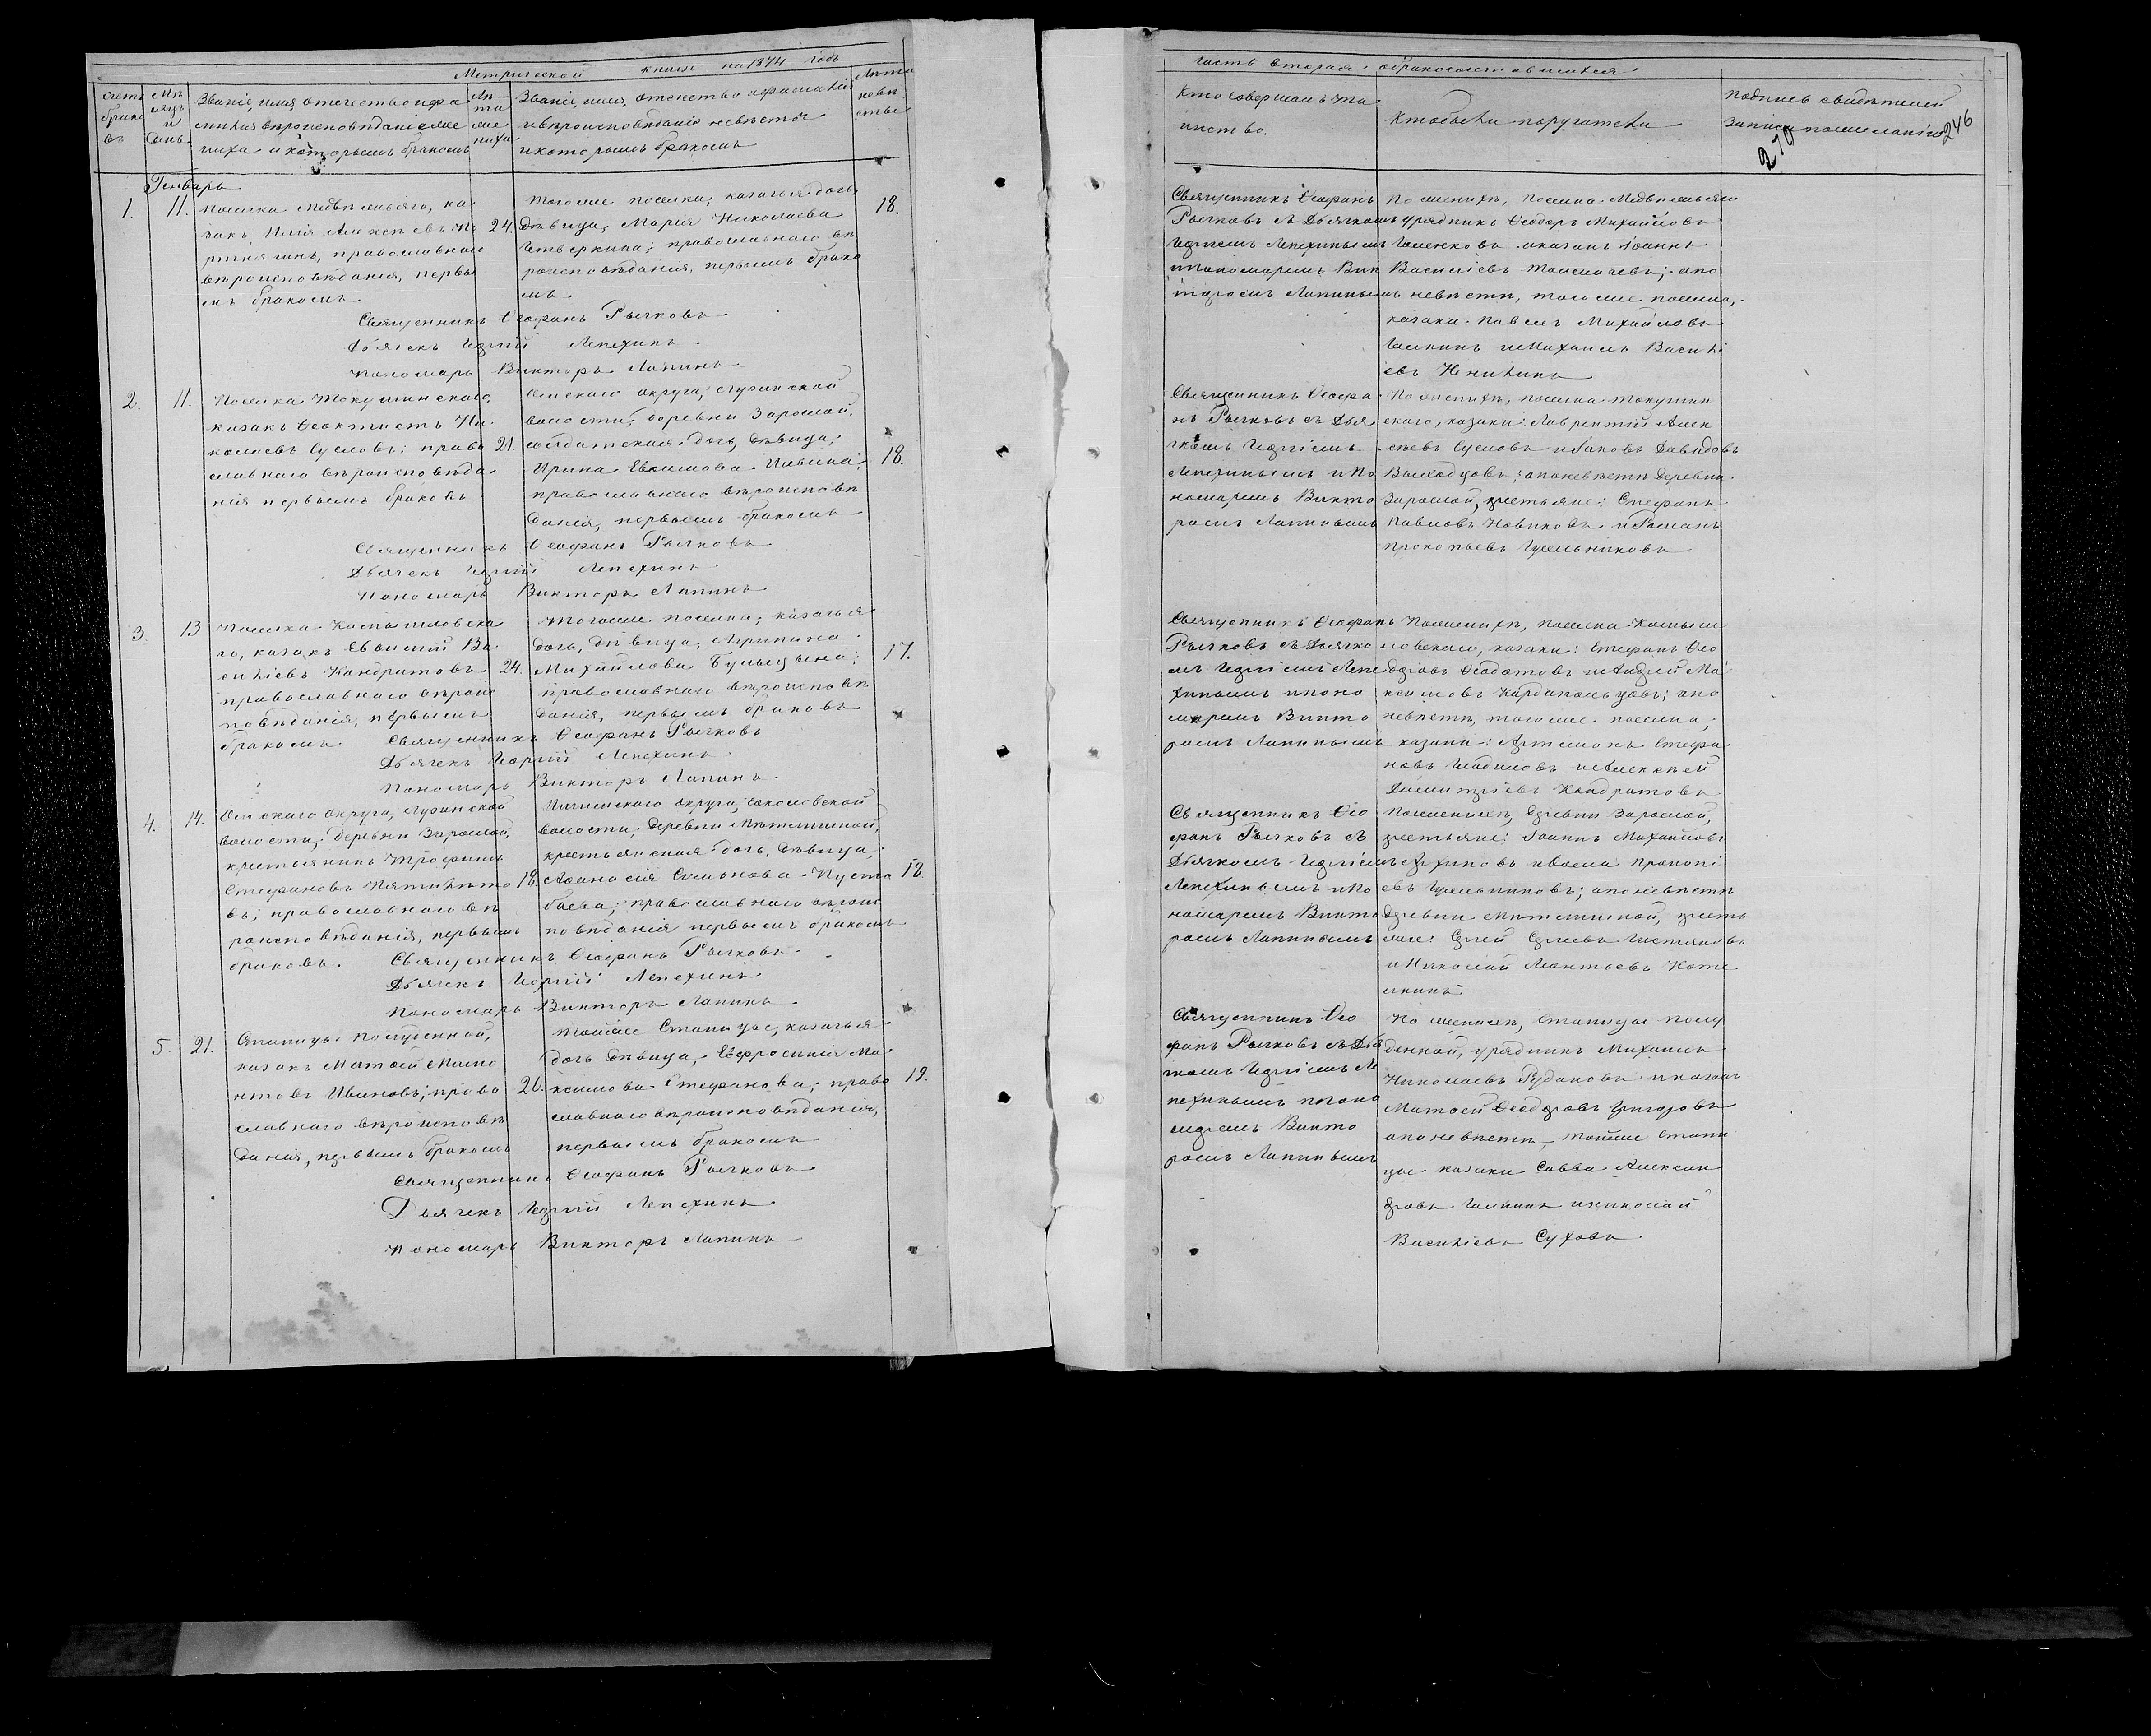 Метрической книги на 1874 годъ
Счетъ браковъ
Мѣсяцъ и день.
Званіе, имя, отечество и фамилія вѣроисповѣданіе жениха и которымъ бракомъ
Лѣта жениха
Званіе, имя, отечество и фамилія и вѣроисповѣданіе невѣсты и которымъ бракомъ
Лѣта невѣсты
Генварь
1.
11.
Поселка Медвѣжьяго, ка
закъ, Илія Алексѣевъ
православнаго
вѣроисповѣданія, первы
мъ бракомъ
24.
Того же поселка, казачья дочь
дѣвица, Марія Николаева
Четверкина; православнаго вѣ
роисповѣданія, первымъ брако
мъ.
18.
Священникъ Ѳеофанъ Рычковъ
Дьячекъ Георгій Лепехинъ
Пономарь Викторъ Лапинъ
2.
11.
Поселка Токушинскаго,
казакъ Ѳеоктистъ Ни
колаевъ Сусловъ; право
славнаго вѣроисповѣда
нія первымъ бракомъ
21.
Омскаго округа, Лузинской
волости, деревни Зарослой,
солдатская дочь, дѣвица,
Ирина Евѳимова Ильина;
православнаго вѣроисповѣ
данія, первымъ бракомъ
18.
Священникъ Ѳеофанъ Рычковъ
Дьячекъ Георгій Лепехинъ
Пономарь Викторъ Лапинъ
3.
13
Поселка Камышловска
го, казакъ Евѳимій Ва
силіевъ Кандратовъ
православнаго вѣроис
повѣданія, первымъ
бракомъ.
24.
Того же поселка, казачья
дочь, дѣвица, Агрипина
Михайлова
православнаго вѣроисповѣ
данія, первымъ бракомъ
17.
Священникъ Ѳеофанъ Рычковъ
Дьячекъ Георгій Лепехинъ
Пономарь Викторъ Лапинъ
4.
14.
Омскаго округа, Лузинской
волости, деревни Зарослой,
крестьянинъ Трофимъ
Стефановъ Пятилѣто
въ; православнаго вѣ
роисповѣданія, первымъ
бракомъ.
18.
Ишимскаго округа, Соколовской
волости, деревни
крестьянская дочь, дѣвица,
Аѳанасія Симонова Пуста
баева; православнаго вѣроис
повѣданія первымъ бракомъ
18.
Священникъ Ѳеофанъ Рычковъ
Дьячекъ Георгій Лепехинъ
Пономарь Викторъ Лапинъ
5.
21.
Станицы Полуденной,
казакъ Матѳей
Ивановъ; право
славнаго вѣроисповѣ
данія, первымъ бракомъ
20.
Той же станицы, казачья
дочь дѣвица, Евфросинія Ма
ксимова Стефанова; право
славнаго вѣроисповѣданія,
первымъ бракомъ
19.
Священникъ Ѳеофанъ Рычковъ
Дьячекъ Георгій Лепехинъ
Пономарь Викторъ Лапинъ
Часть вторая о бракосочетавшихся
Кто совершалъ та
инство.
Кто были поручатели
Подпись свидѣтелей
записи по желанію
246
270
Священникъ Ѳеофанъ
Рычковъ съ Дьячкомъ
Георгіемъ Лепехинымъ
и пономаремъ Вик
торомъ Лапинымъ
По женихѣ, поселка Медвѣжьяго
урядникъ Ѳеодоръ Михайловъ
и казакъ Іоаннъ
Василіевъ Толмачевъ; а по
невѣстѣ, того же поселка,
казаки Павелъ Михайловъ
и Михаилъ Василі
евъ
Священникъ Ѳеофа
нъ Рычковъ съ Дья
чкомъ Георгіемъ
Лепехинымъ и По
номаремъ Викто
ромъ Лапинымъ
По женихѣ, поселка Токушин
скаго, казаки: Лаврентій Алек
сѣевъ Сусловъ и Іаковъ Давидовъ
Выходцовъ; а по невѣстѣ деревни
Зарослой, крестьяне: Стефанъ
Павловъ Новиковъ и Романъ
Прокопьевъ
Священникъ Ѳеофанъ
Рычковъ съ Дьячко
мъ Георгіемъ Лепе
хинымъ и поно
маремъ Викто
ромъ Лапинымъ
По женихѣ, поселка Камыш
ловскаго, казаки: Стефанъ Ѳео
доровъ Ѳедотовъ и Андрей Ма
ксимовъ Кардапольцовъ; а по
невѣстѣ, того же поселка,
казаки: Артемонъ Стефа
новъ и Алексѣй
Димитріевъ Кандратовъ
Священникъ Ѳео
фанъ Рычковъ съ
Дьячкомъ Георгіемъ
Лепехинымъ и По
номаремъ Викто
ромъ Лапинымъ
По женихѣ, деревни Зарослой,
крестьяне: Іоаннъ Михайловъ
Прокопі
евъ а по невѣстѣ
деревни крестья
не: Сергѣй Сергѣевъ
и Николай Леонтьевъ
Священникъ Ѳео
фанъ Рычковъ съ Дья
чкомъ Георгіемъ Ле
пехинымъ и поно
маремъ Викто
ромъ Лапинымъ
По женихѣ, станицы Полу
денной, урядникъ Михаилъ
Николаевъ Рудаковъ и казакъ
Матѳей Ѳеодоровъ Григоровъ
а по невѣстѣ той же стани
цы казаки Савва Алексан
дровъ и Николай
Василіевъ Суховъ